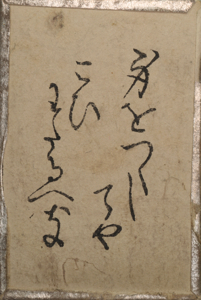 身をつくし
てや
こひ
わたるへき